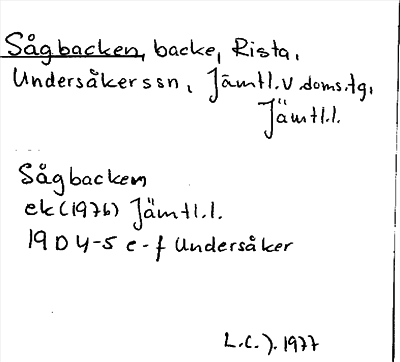 Sågbacken, backe, Rista,
Undersåkers sn, Jämtl.v.doms.tg,
Jämtl.l.
Sågbacken
ek (1976) Jämtl.l.
19 D 4-5 e-f Undersåker
L.C.J. 1977